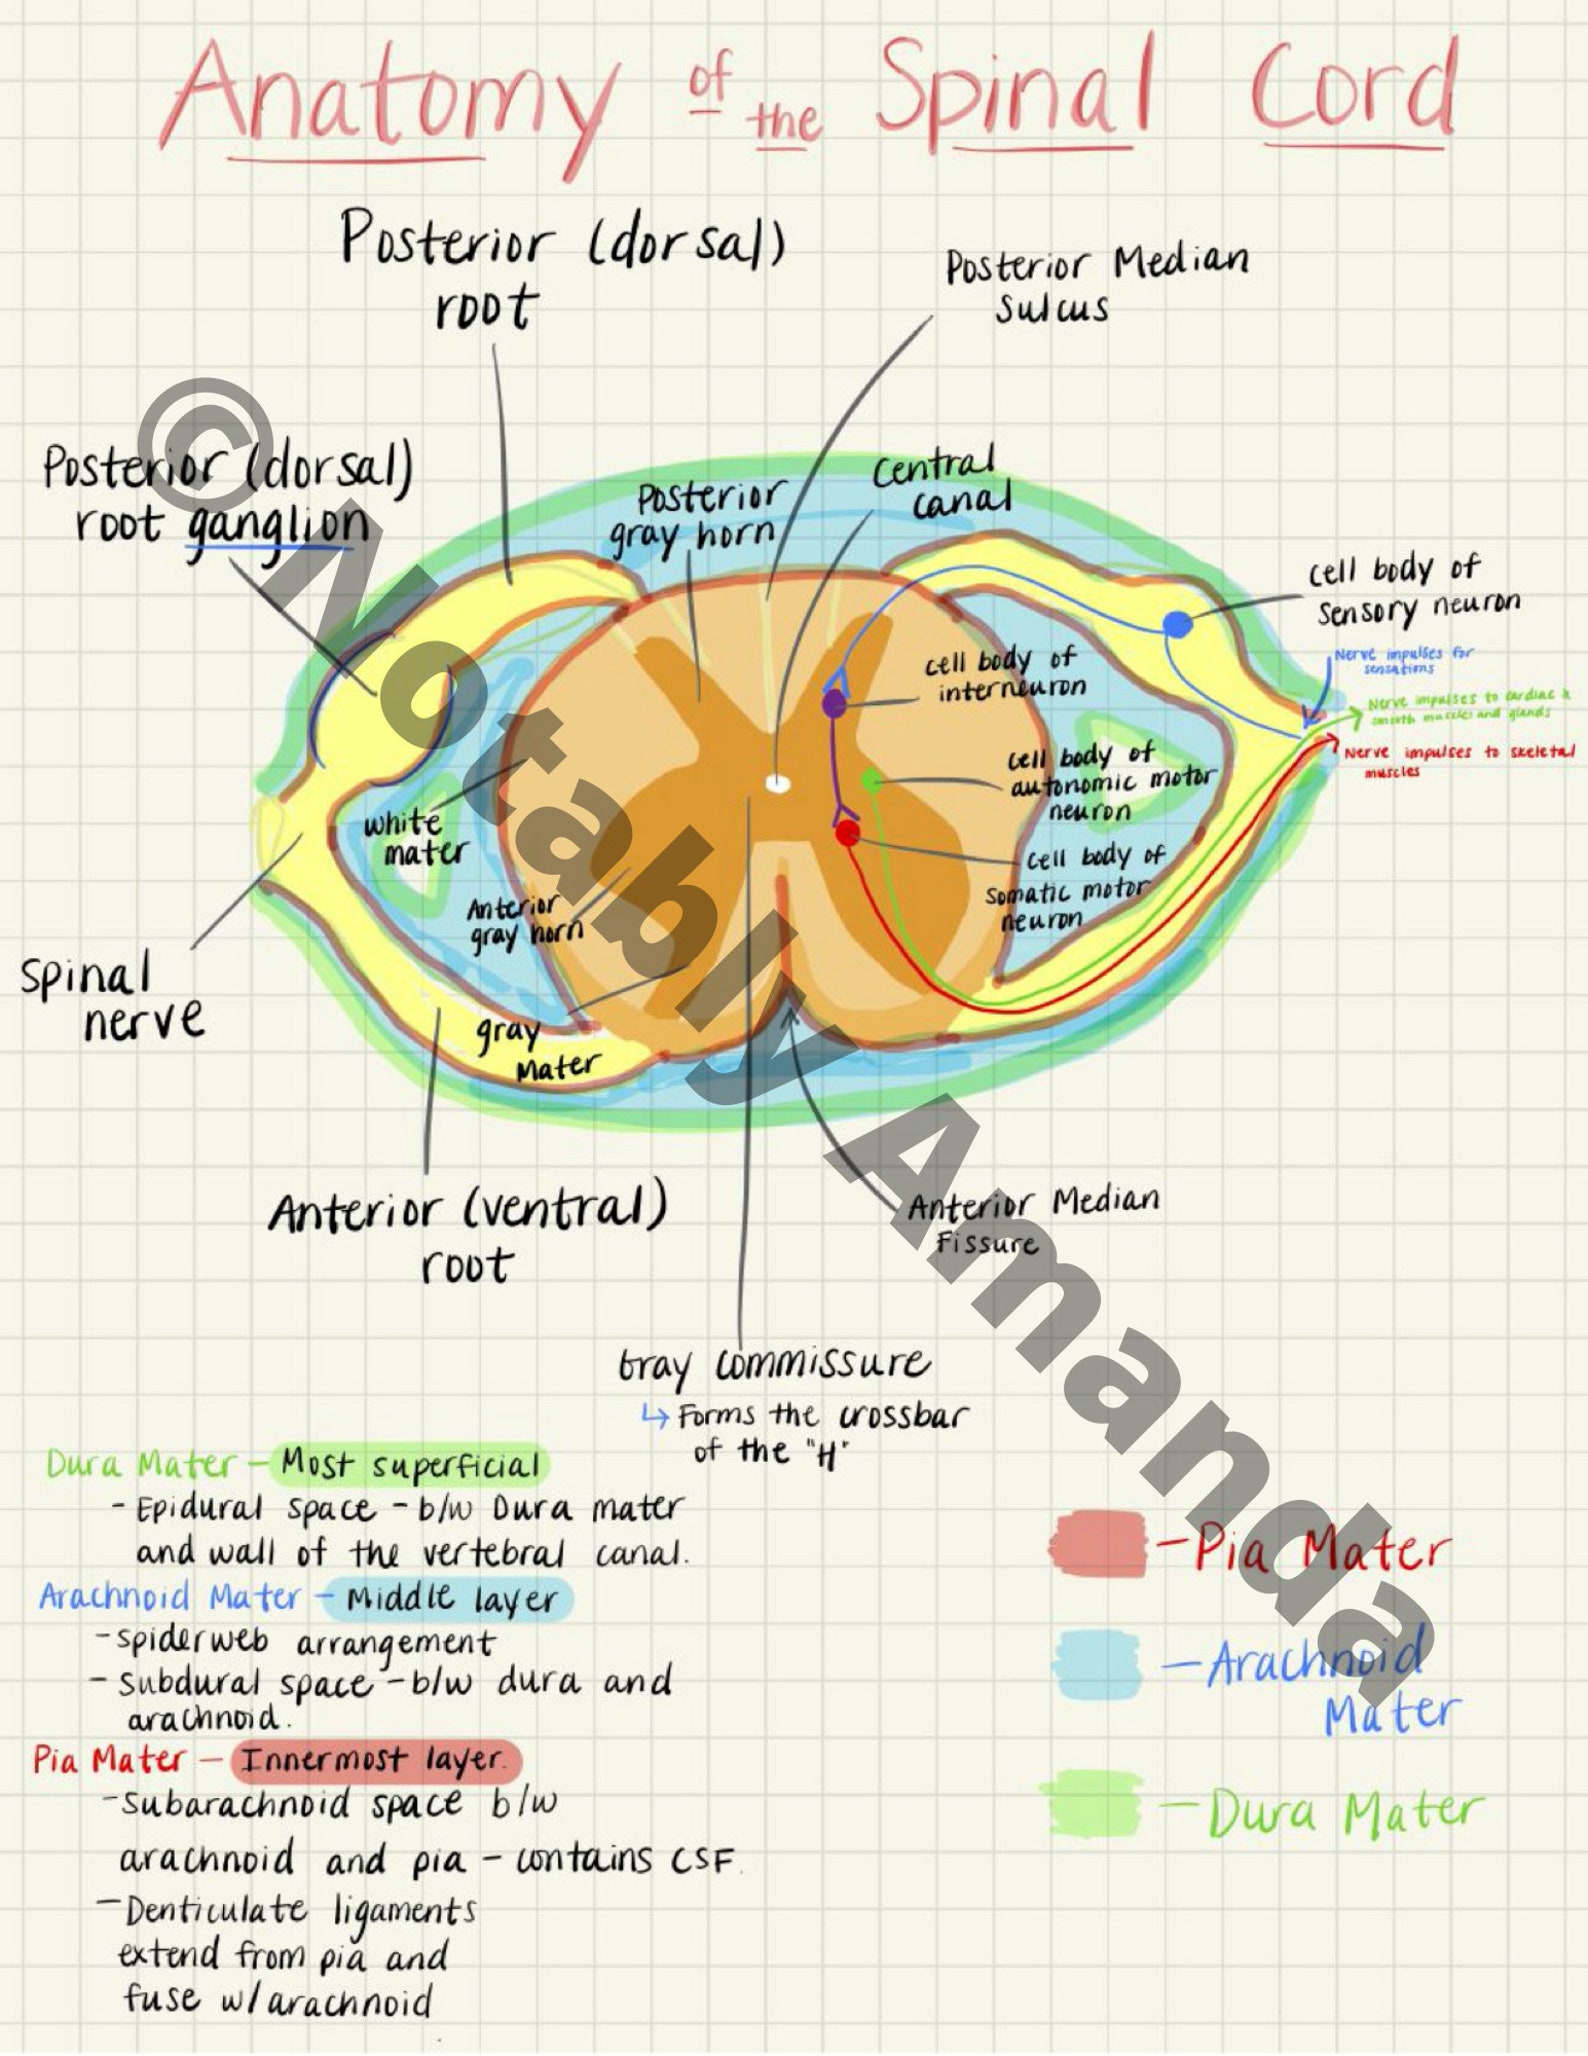 Anatomy of the Spinal Cord
Posterior (dorsal)
root
Posterior Median
Sulcus
Posterior (dorsal)
root ganglion
Posterior
gray horn
Central
canal
cell body of
sensory neuron
Nerve impulses for
sensations
Nerve impulses to cardiac &
smooth muscles and glands
Nerve impulses to skeletal
muscles
cell body of
interneuron
cell body of
autonomic motor
neuron
cell body of
Somatic motor
neuron
white
mater
Anterior
gray horn
gray
Mater
Spinal
nerve
Anterior (ventral)
root
Anterior Median
Fissure
Gray commissure
↳ Forms the crossbar
of the "H"
Dura Mater - Most superficial
- Epidural space - b/w Dura mater
and wall of the vertebral canal.
Arachnoid Mater - Middle layer
- spiderweb arrangement
- Subdural space - b/w dura and
arachnoid.
Pia Mater - Innermost layer.
- Subarachnoid space b/w
arachnoid and pia - contains CSF.
- Denticulate ligaments
extend from pia and
fuse w/arachnoid
- Pia Mater
- Arachnoid
Mater
- Dura Mater
© Notably Amanda